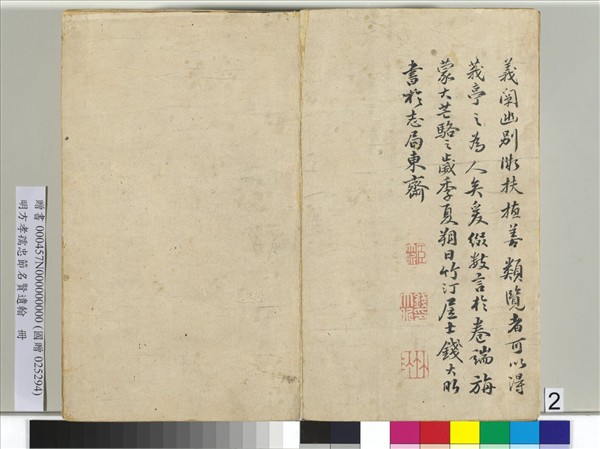 義闡幽別微扶植善類覽者可以得
莪亭之為人矣爰綴數言於卷端旃
蒙大芒駱之歲季夏朔日竹汀居士錢大昕
書於志局東齋
贈書 000457N000000000 (國贈 025294)
明方孝孺忠節名賢遺翰 冊
2